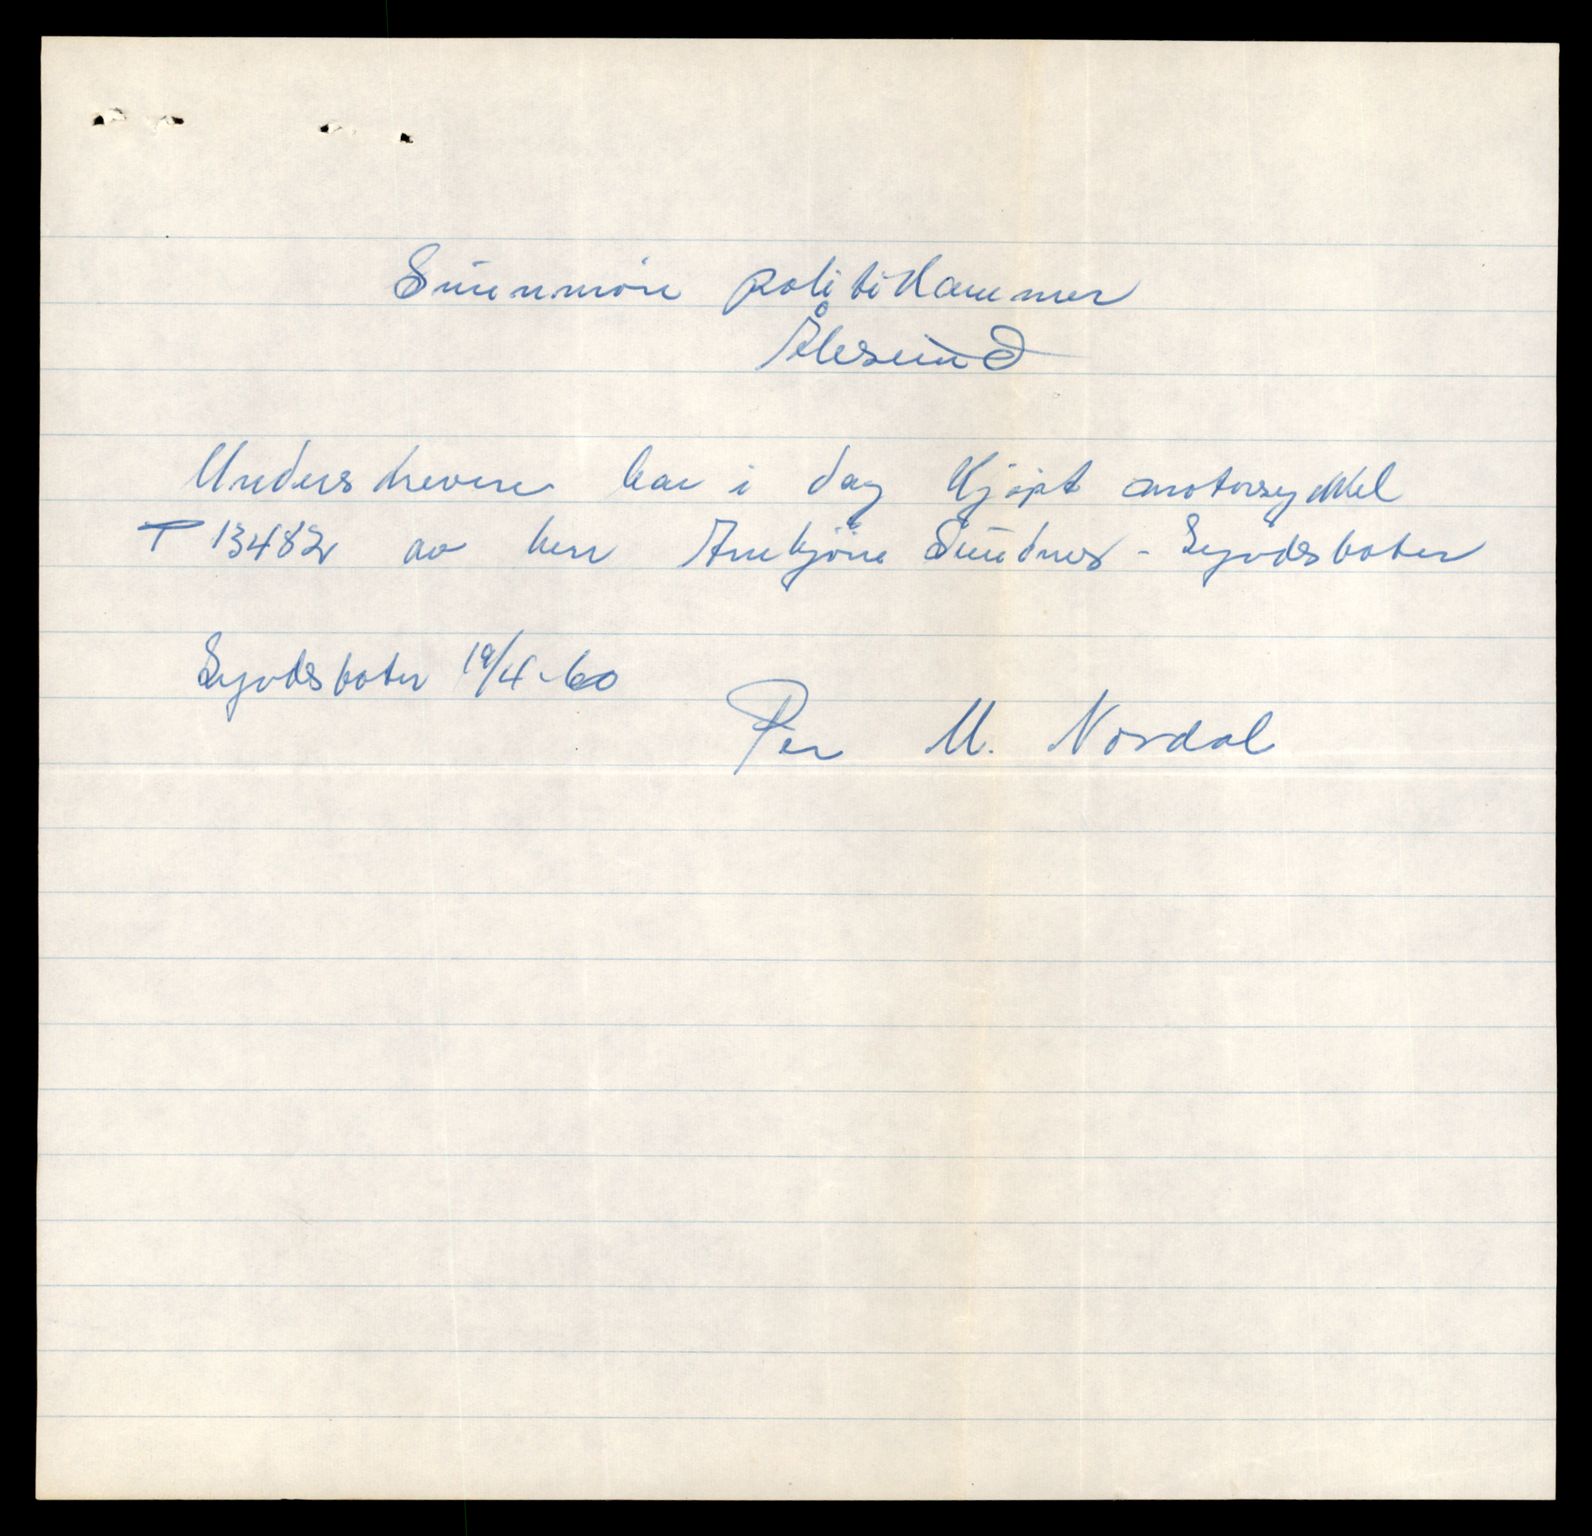 Sunnmöre politikammer
Ålesund
Underskrevne har i dag kjöpt motorsykkel
T 13482 av herr Arnbjörn Sundnes - Syvdsbotn
Syvdsbotn 19/4-60
Per M. Nordal